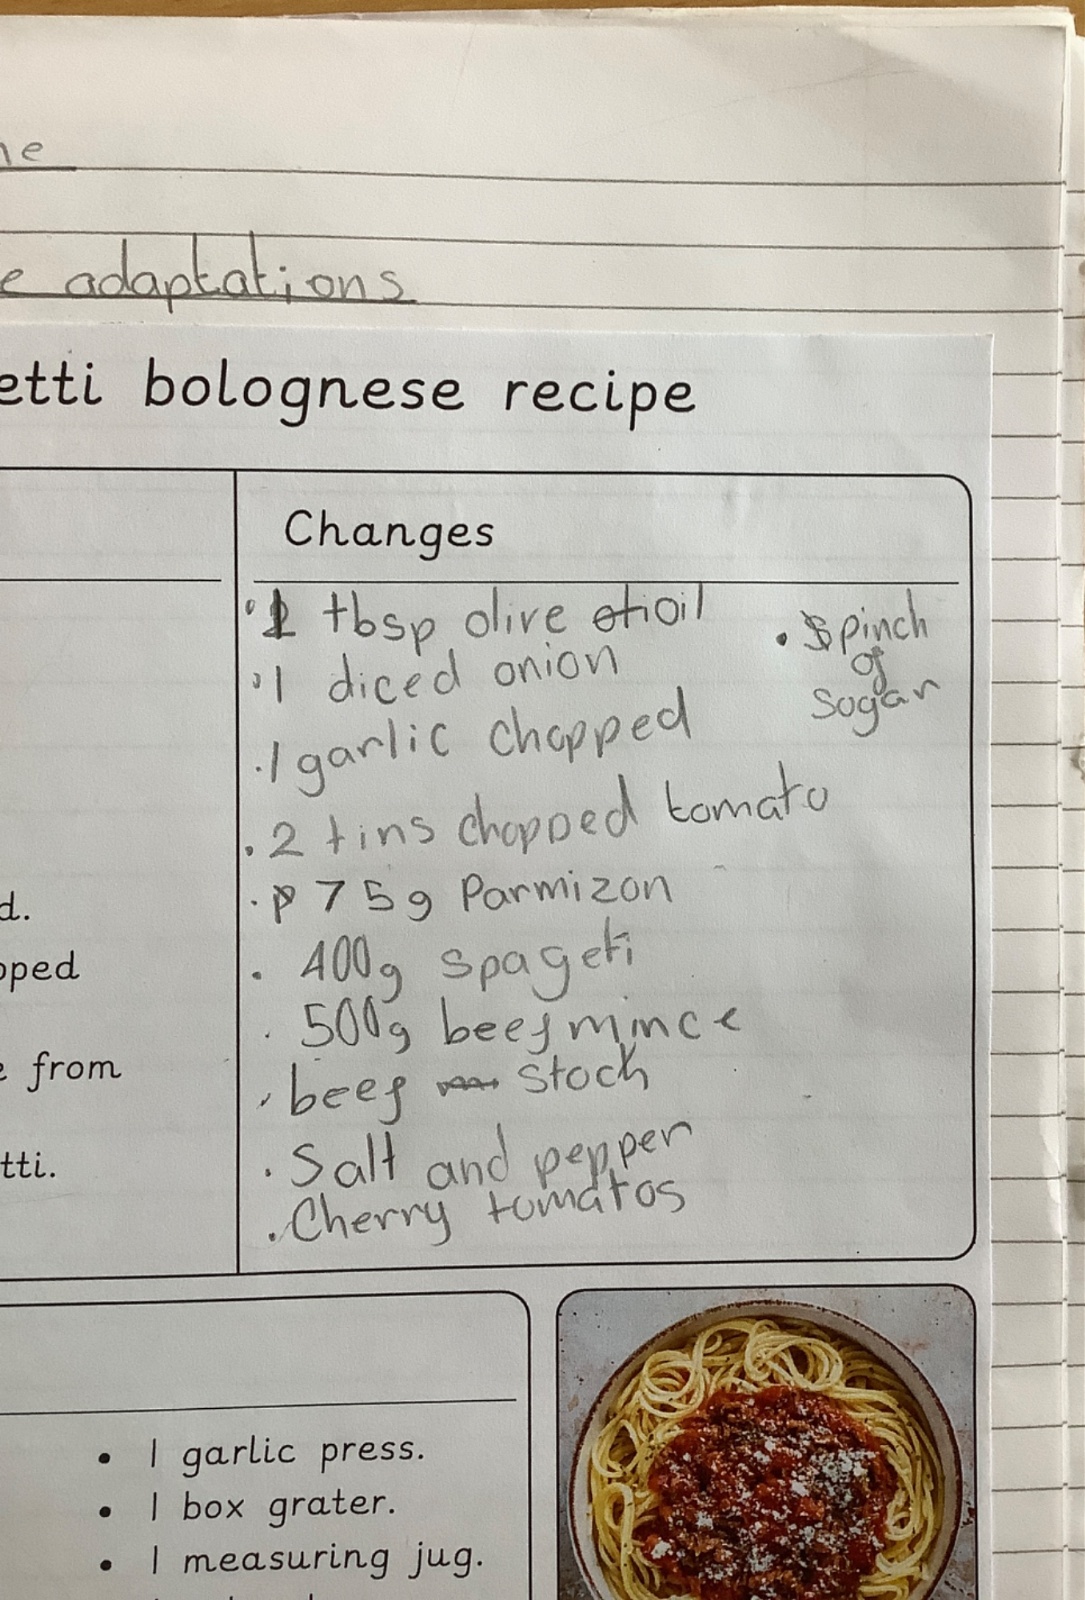 ne
e adaptations
etti bolognese recipe
Changes
tbsp olive oil
1 diced onion
1 garlic chopped
2 tins chopped tomato
75g Parmizon
400g spageti
500g beef mince
beef stock
Salt and pepper
Cherry tomatos
pinch
of
Sugar
d.
pped
e from
tti.
1 garlic press.
1 box grater.
1 measuring jug.